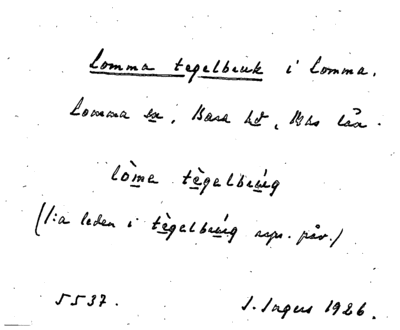 Lomma tegelbruk i Lomma.
Lomma sn, Bara hd, Mhs län.
lòma tègelbrúg
(1:a leden i tègelbrúg upr. påv.)
5537. J. Ingers 1926.